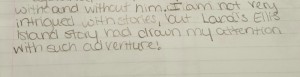 with and without him. I am not very
intrigued with stories, but Lara's Ellis
Island story had drawn my attention
with such adventure!